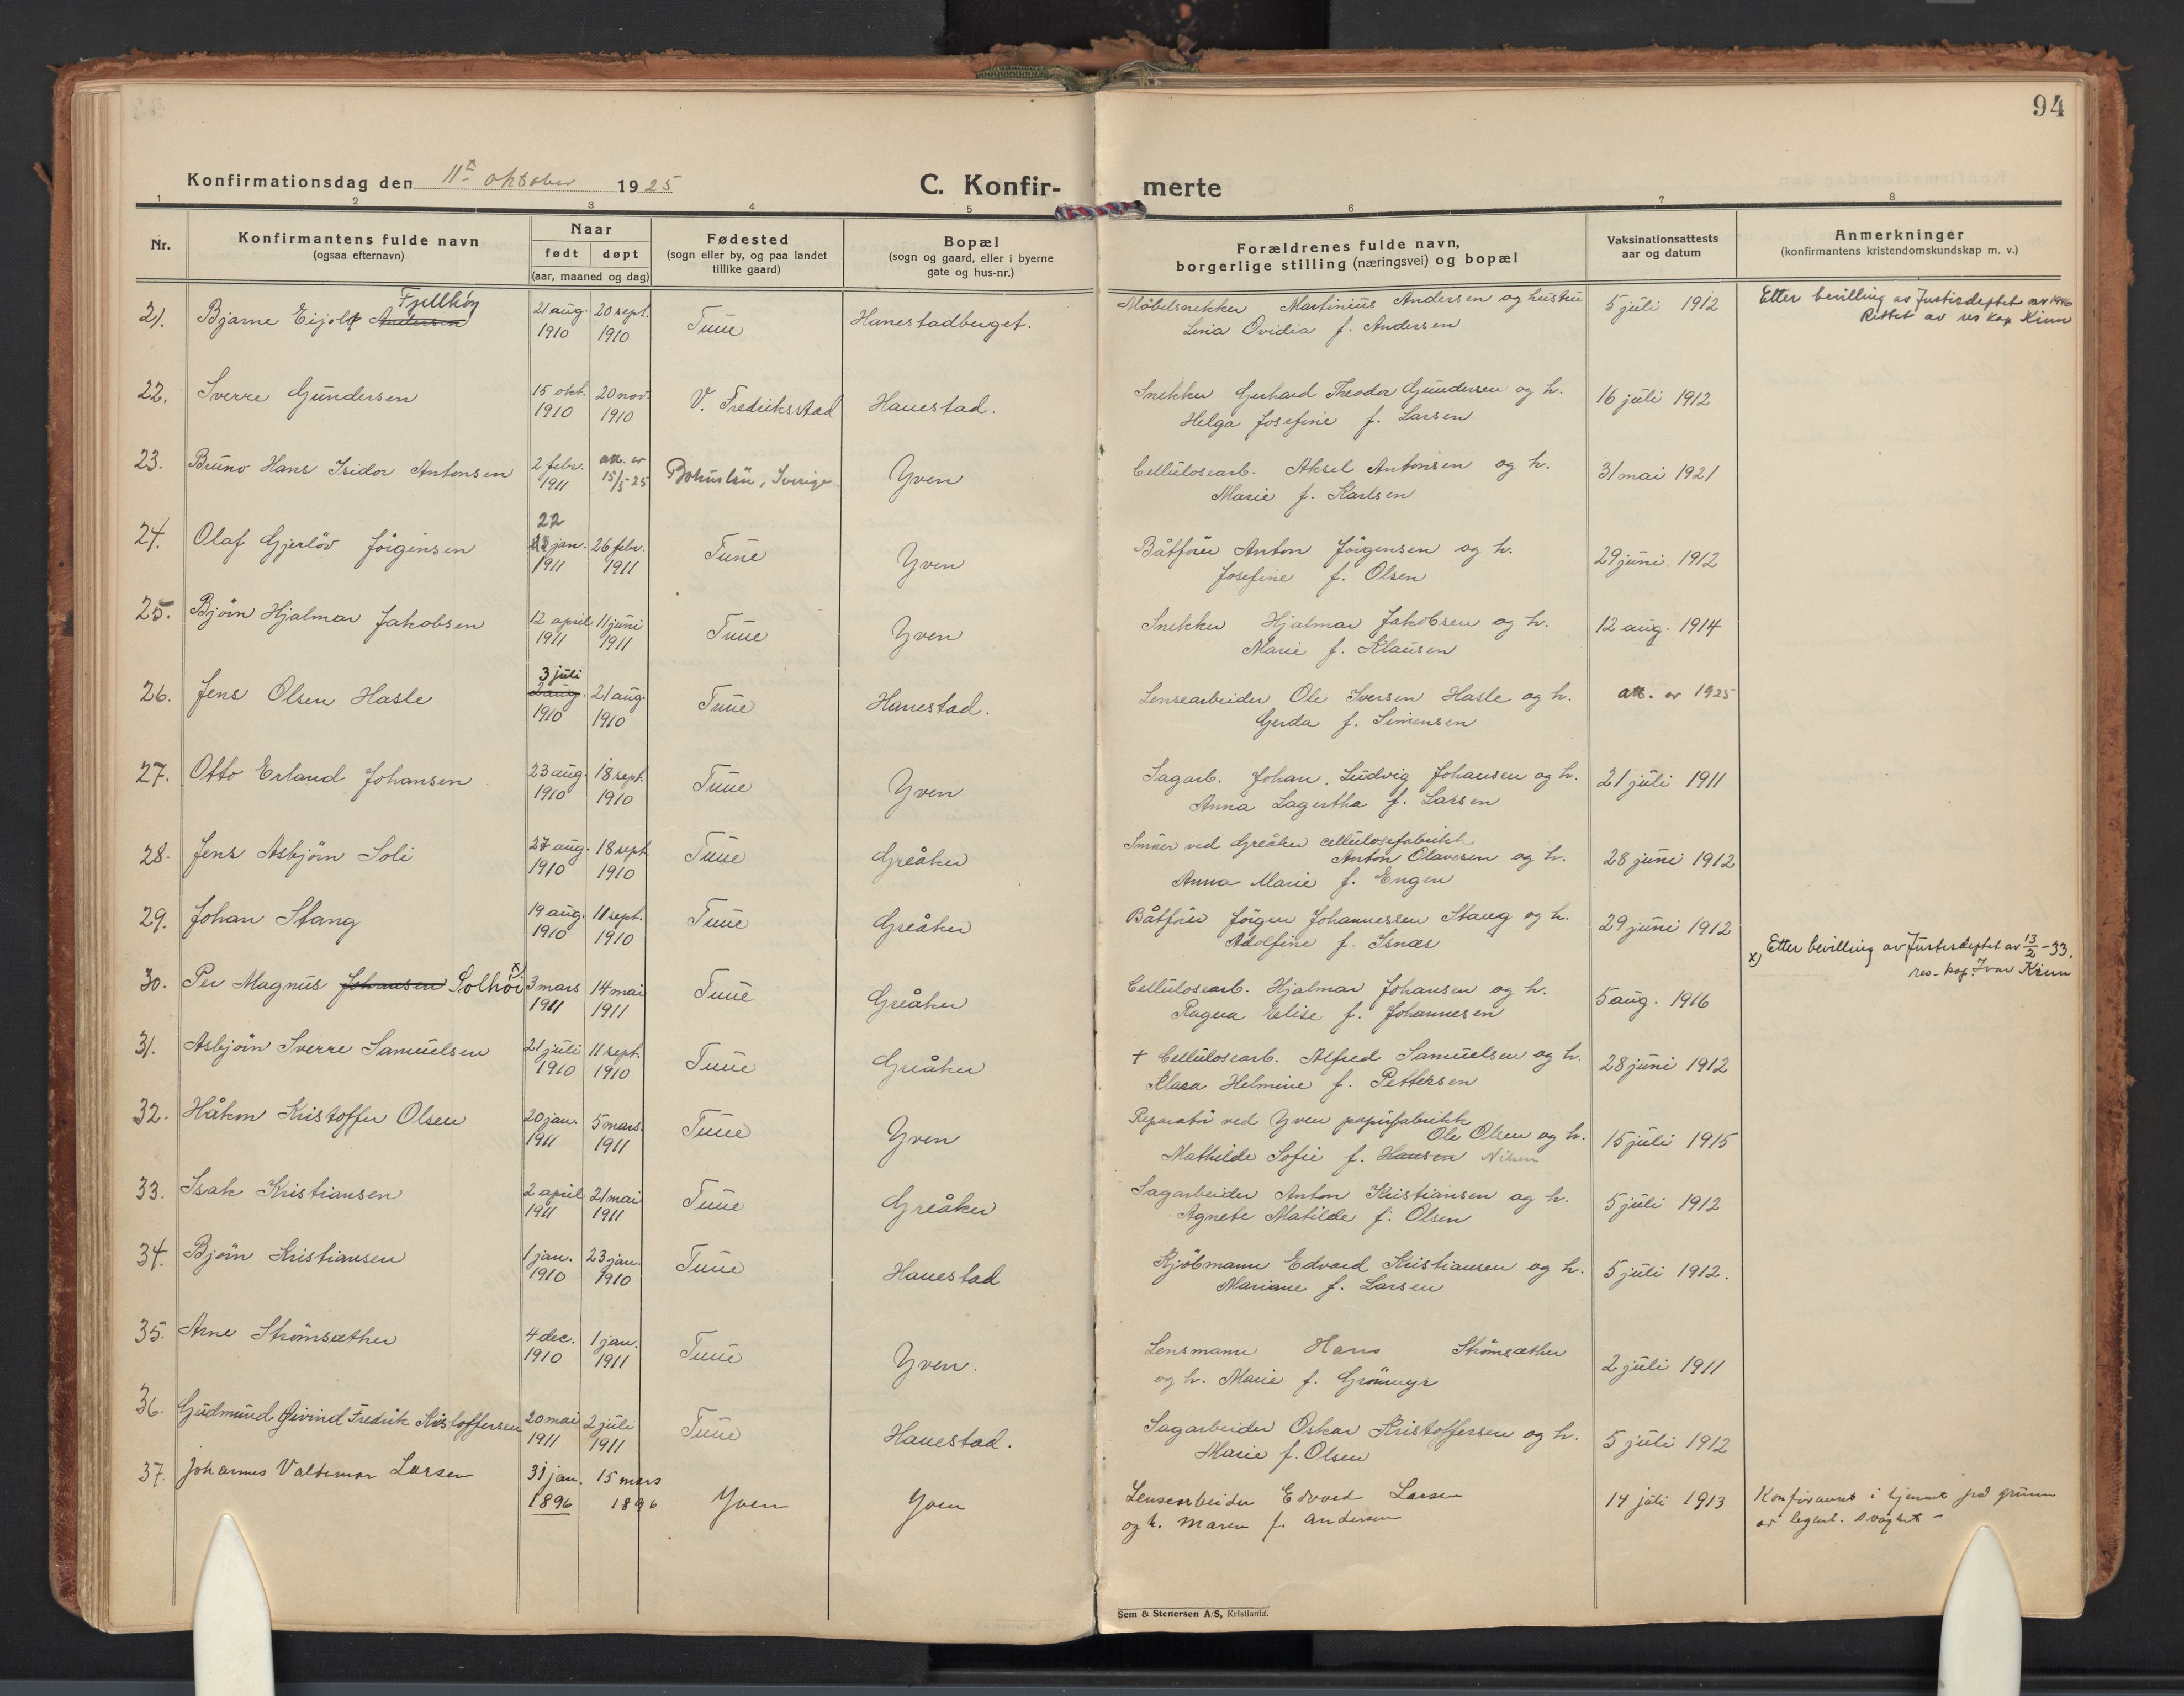 94
Konfirmationsdag den 11te oktober 1925
C. Konfir- merte
1 2 3 4 5 6 7 8
Nr.
Konfirmantens fulde navn
(ogsaa efternavn)
Naar
født døpt
(aar, maaned og dag)
Fødested
(sogn eller by, og paa landet
tillike gaard)
Bopæl
(sogn og gaard, eller i byerne
gate og hus-nr.)
Forældrenes fulde navn,
borgerlige stilling (næringsvei) og bopæl
Vaksinationsattests
aar og datum
Anmerkninger
(konfirmantens kristendomskundskap m. v.)
Fjellhöy
21. Bjarne Eijolf Andersen 21 aug. 20 sept. Tune Hanestadberget. Möbelsnekker Martinius Andersen og hustru 5 juli 1912 Etter bevilling av Justisdeptet av 1946
1910 1910 Lina Ovidia f. Andersen Rettet av res kap Kinn
22. Sverre Gundersen 15 okt. 20 nov. V. Fredriksstad Hanestad. Snekker Gerhard Theodor Gundersen og h. 16 juli 1912
1910 1910 Helga Josefine f. Larsen
23. Bruno Hans Isidor Antonsen 2 febr. att. er Bohuslän, Sverige. Yven Cellulosearb. Aksel Antonsen og h. 31 mai 1921
1911 15/5 25 Marie f. Karlsen
22
24. Olaf Gjerlöv Jörgensen jan. 26 febr. Tune Yven Båtförer Anton Jörgensen og h. 29 juni 1912
1911 1911 Josefine f. Olsen
25. Björn Hjalmar Jakobsen 12 april 11 juni Tune Yven Snekker Hjalmar Jakobsen og h. 12 aug. 1914
1911 1911 Marie f. Klausen
3 juli
26. Jens Olsen Hasle 2 aug. 21 aug. Tune Hanestad. Lensearbeider Ole Iversen Hasle og h. att. er 1925
1910 1910 Gerda f. Simensen
27. Otto Erland Johansen 23 aug. 18 sept. Tune Yven Sagarb. Johan Ludvig Johansen og h. 21 juli 1911
1910 1910 Anna Lagertha f. Larsen
28. Jens Asbjörn Soli 27 aug. 18 sept Tune Greåker Smörer ved Greåker cellulosefabrikk
1910 1910 Anton Olavesen og h. 28 juni 1912
Anna Marie f. Engen
29. Johan Stang 19 aug. 11 sept. Tune Greåker Båtförer Jörgen Johannessen Stang og h. 29 juni 1912
1910 1910 Adolfine f. Isnæs
x) Etter bevilling av Justisdeptet av 13/2-33.
res-kap. Ivar Kinn
30. Per Magnus Johansen Solhöi x) 3 mars 14 mai Tune Greåker Cellulosearb. Hjalmar Johansen og h. 5 aug. 1916
1911 1911 Ragna Elise f. Johannesen
31. Asbjörn Sverre Samuelsen 21 juli 11 sept. Tune Greåker + Cellulosearb. Alfred Samuelsen og h. 28 juni 1912
1910 1910 Klara Helmine f. Pettersen
32. Håkon Kristoffer Olsen 20 jan. 5 mars. Tune Yven Reparatör ved Yven papirfabrikk
1911 1911 Ole Olsen og h. 15 juli 1915
Mathilde Sofie f. Hansen Nilsen
33. Isak Kristiansen 2 april 21 mai Tune Greåker Sagarbeider Anton Kristiansen og h. 5 juli 1912
1911 1911 Agnete Matilde f. Olsen
34. Björn Kristiansen 1 jan. 23 jan. Tune Hanestad Kjöbmann Edvard Kristiansen og h. 5 juli 1912.
1910 1910 Mariane f. Larsen
35. Arne Strömsæther 4 dec. 1 jan. Tune Yven. Lensmann Hans Strömsæther 2 juli 1911
1910 1911 og h. Marie f. Grönmyr
36. Gudmund Øivind Fredrik Kristoffersen 20 mai 2 juli Tune Hanestad. Sagarbeider Oskar Kristoffersen og h. 5 juli 1912
1911 1911 Marie f. Olsen
37. Johannes Valdemar Larsen 31 jan. 15 mars Yven Yven Lensearbeider Edvard Larsen 14 juli 1913 Konfirmert i hjemmet på grunn
1896 1896 og h. Maren f. Andersen av legeml. svaghet -
Sem & Stenersen A/S, Kristiania.